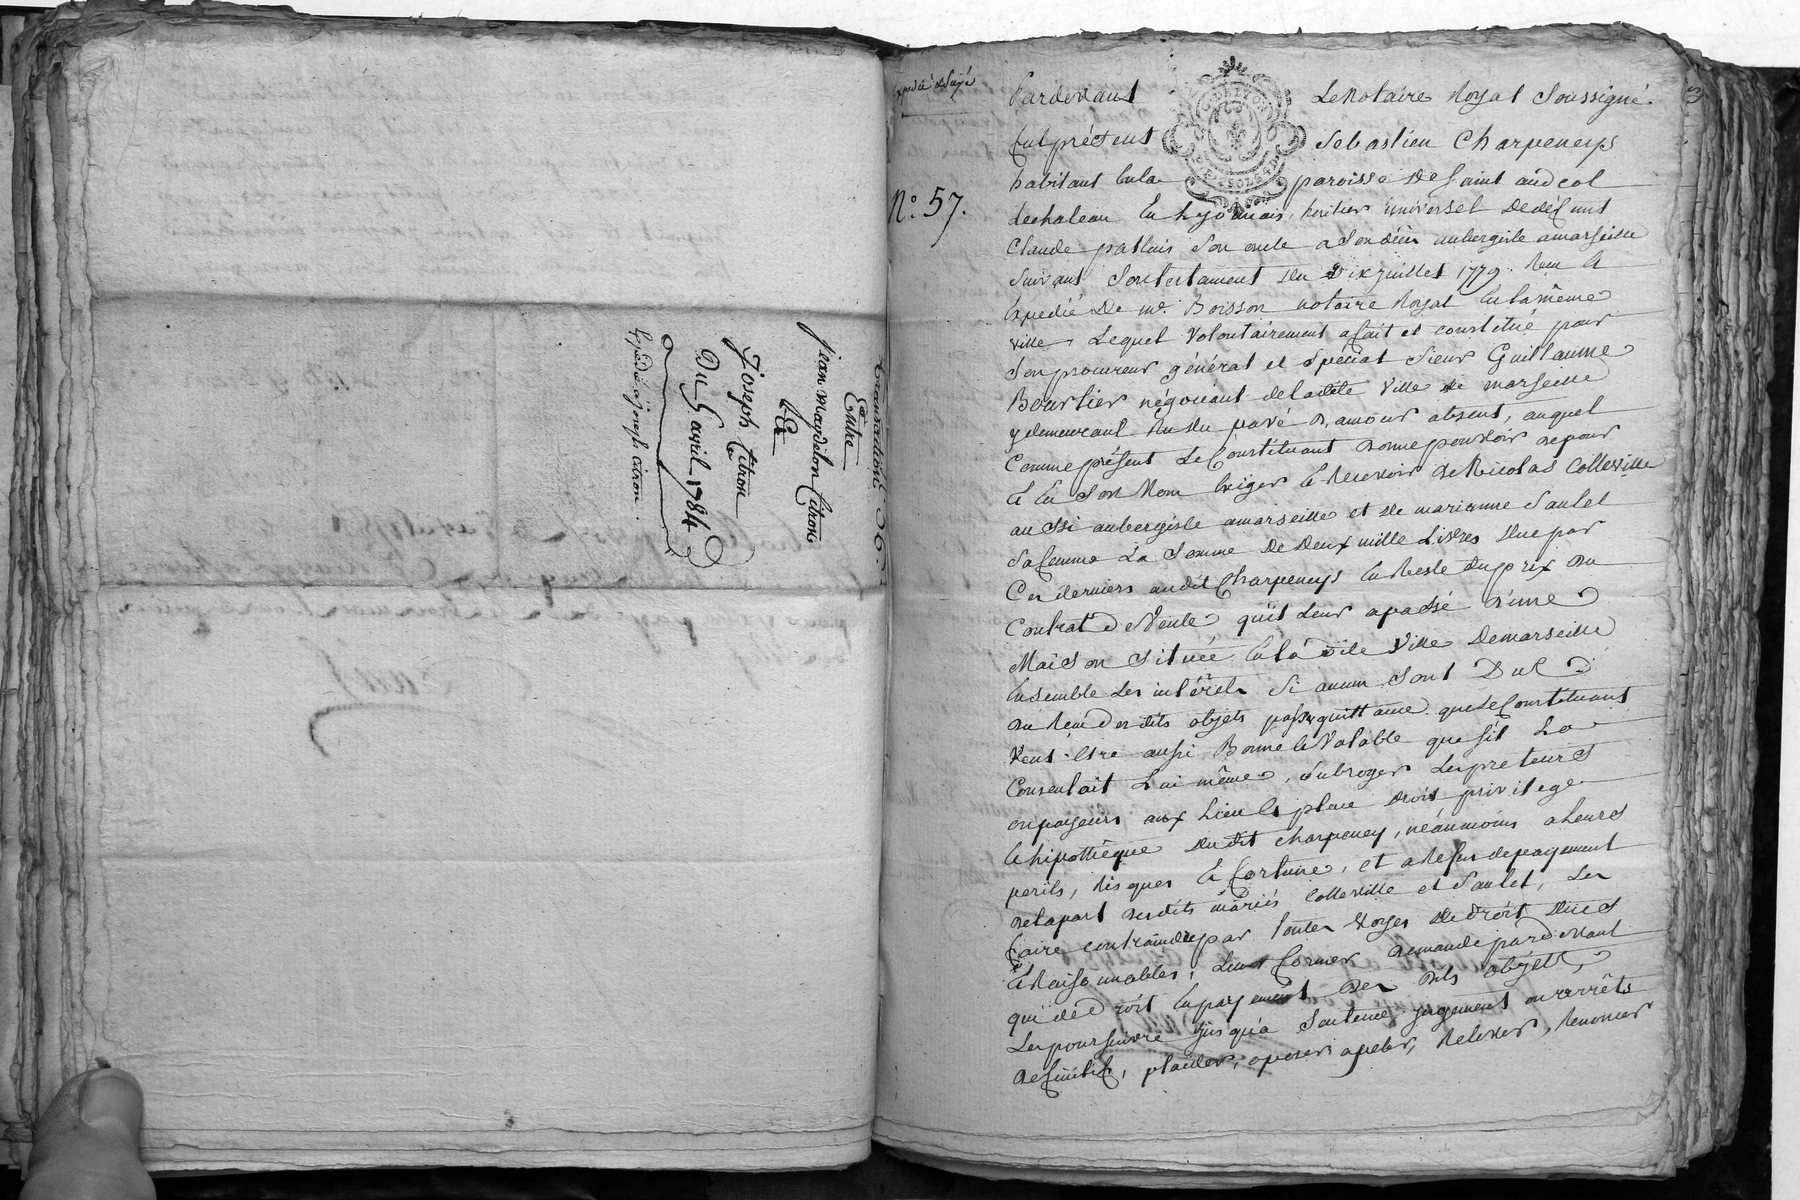 Transaction N° 56.
Entre
jean magdelon Citron
Et
Joseph Citron
Du 5 avril 1784
Expédié à joseph Citron.
Expedié
N.° 57.
Pardevant Le Notaire Royal Soussigné.
fut présent Sebastien Charpeneys
habitant En la paroisse De Saint andeol
Lechateau En Lyonnais, heritier universel De déffunt
Claude patluis Son oncle a Son décès aubergiste a marseille
Suivant Son testament du Dix juillet 1779. Reçu Et
Expedié De me. Boisson notaire Royal En la même
ville, Lequel Volontairement a fait et constitué pour
Son procureur général et Special Sieur Guillaume
Bourlier négociant de ladite Ville De marseille
y demeurant Rue du pavé D'amour absent, auquel
Comme présent Le Constituant Donne pouvoir De pour
Et En Son Nom Exiger Et Recevoir De Nicolas Colleville
aussi aubergiste a marseille et De marianne Saulet
Sa femme La Somme De Deux mille Livres Due par
Ces derniers audit Charpeneys En Reste du prix Du
Contrat De Vente qu'il Leur a passé D'une
Maison Située En la dite Ville De marseille
Ensemble Les intérêts Si aucun Sont Dus
Du Reçu Des dits objets passer quittance que Le Constituant
Veut être aussi Bonne Et Valable que s'il La
Consentait Lui même, Subroger Les preteurs
ou payeurs aux Lieu Et place Droit, privilege
Et hipothèque Dudit Charpeney, néanmoins a Leurs
perils, Risques Et fortune, et a Refus de payement
De la part Des dits mariés Colleville et Saulet, Les
faire contraindre par toutes Voyes De droit Dues
Et Raisonnables, Leur former Demande pardevant
qui de Droit En payement Des Dits objets,
Les poursuivre jusqu'à Sentence, jugement ou arrêts
Definitifs, plaider, oposer, apeler, Relever, Renoncer